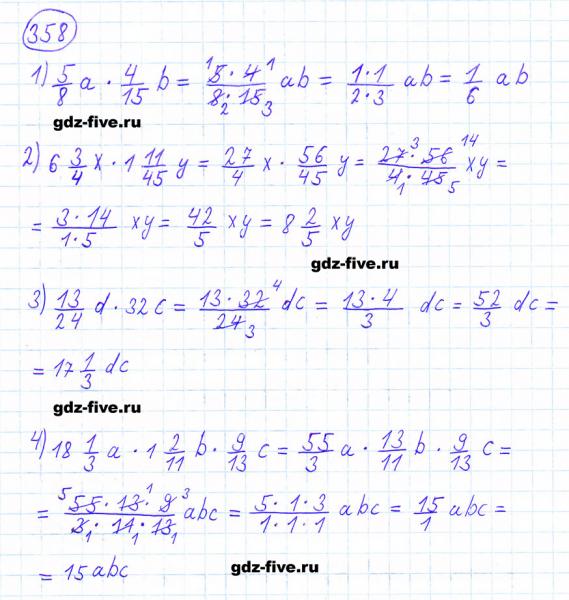 358
1) 5/8 a · 4/15 b = 5 · 4 / 8 · 15 ab = 1 · 1 / 2 · 3 ab = 1/6 ab
gdz-five.ru
2) 6 3/4 x · 1 11/45 y = 27/4 x · 56/45 y = 27 · 56 / 4 · 45 xy =
= 3 · 14 / 1 · 5 xy = 42/5 xy = 8 2/5 xy
gdz-five.ru
3) 13/24 d · 32 c = 13 · 32 / 24 dc = 13 · 4 / 3 dc = 52/3 dc =
= 17 1/3 dc
gdz-five.ru
4) 18 1/3 a · 1 2/11 b · 9/13 c = 55/3 a · 13/11 b · 9/13 c =
= 55 · 13 · 9 / 3 · 11 · 13 abc = 5 · 1 · 3 / 1 · 1 · 1 abc = 15/1 abc =
= 15 abc
gdz-five.ru